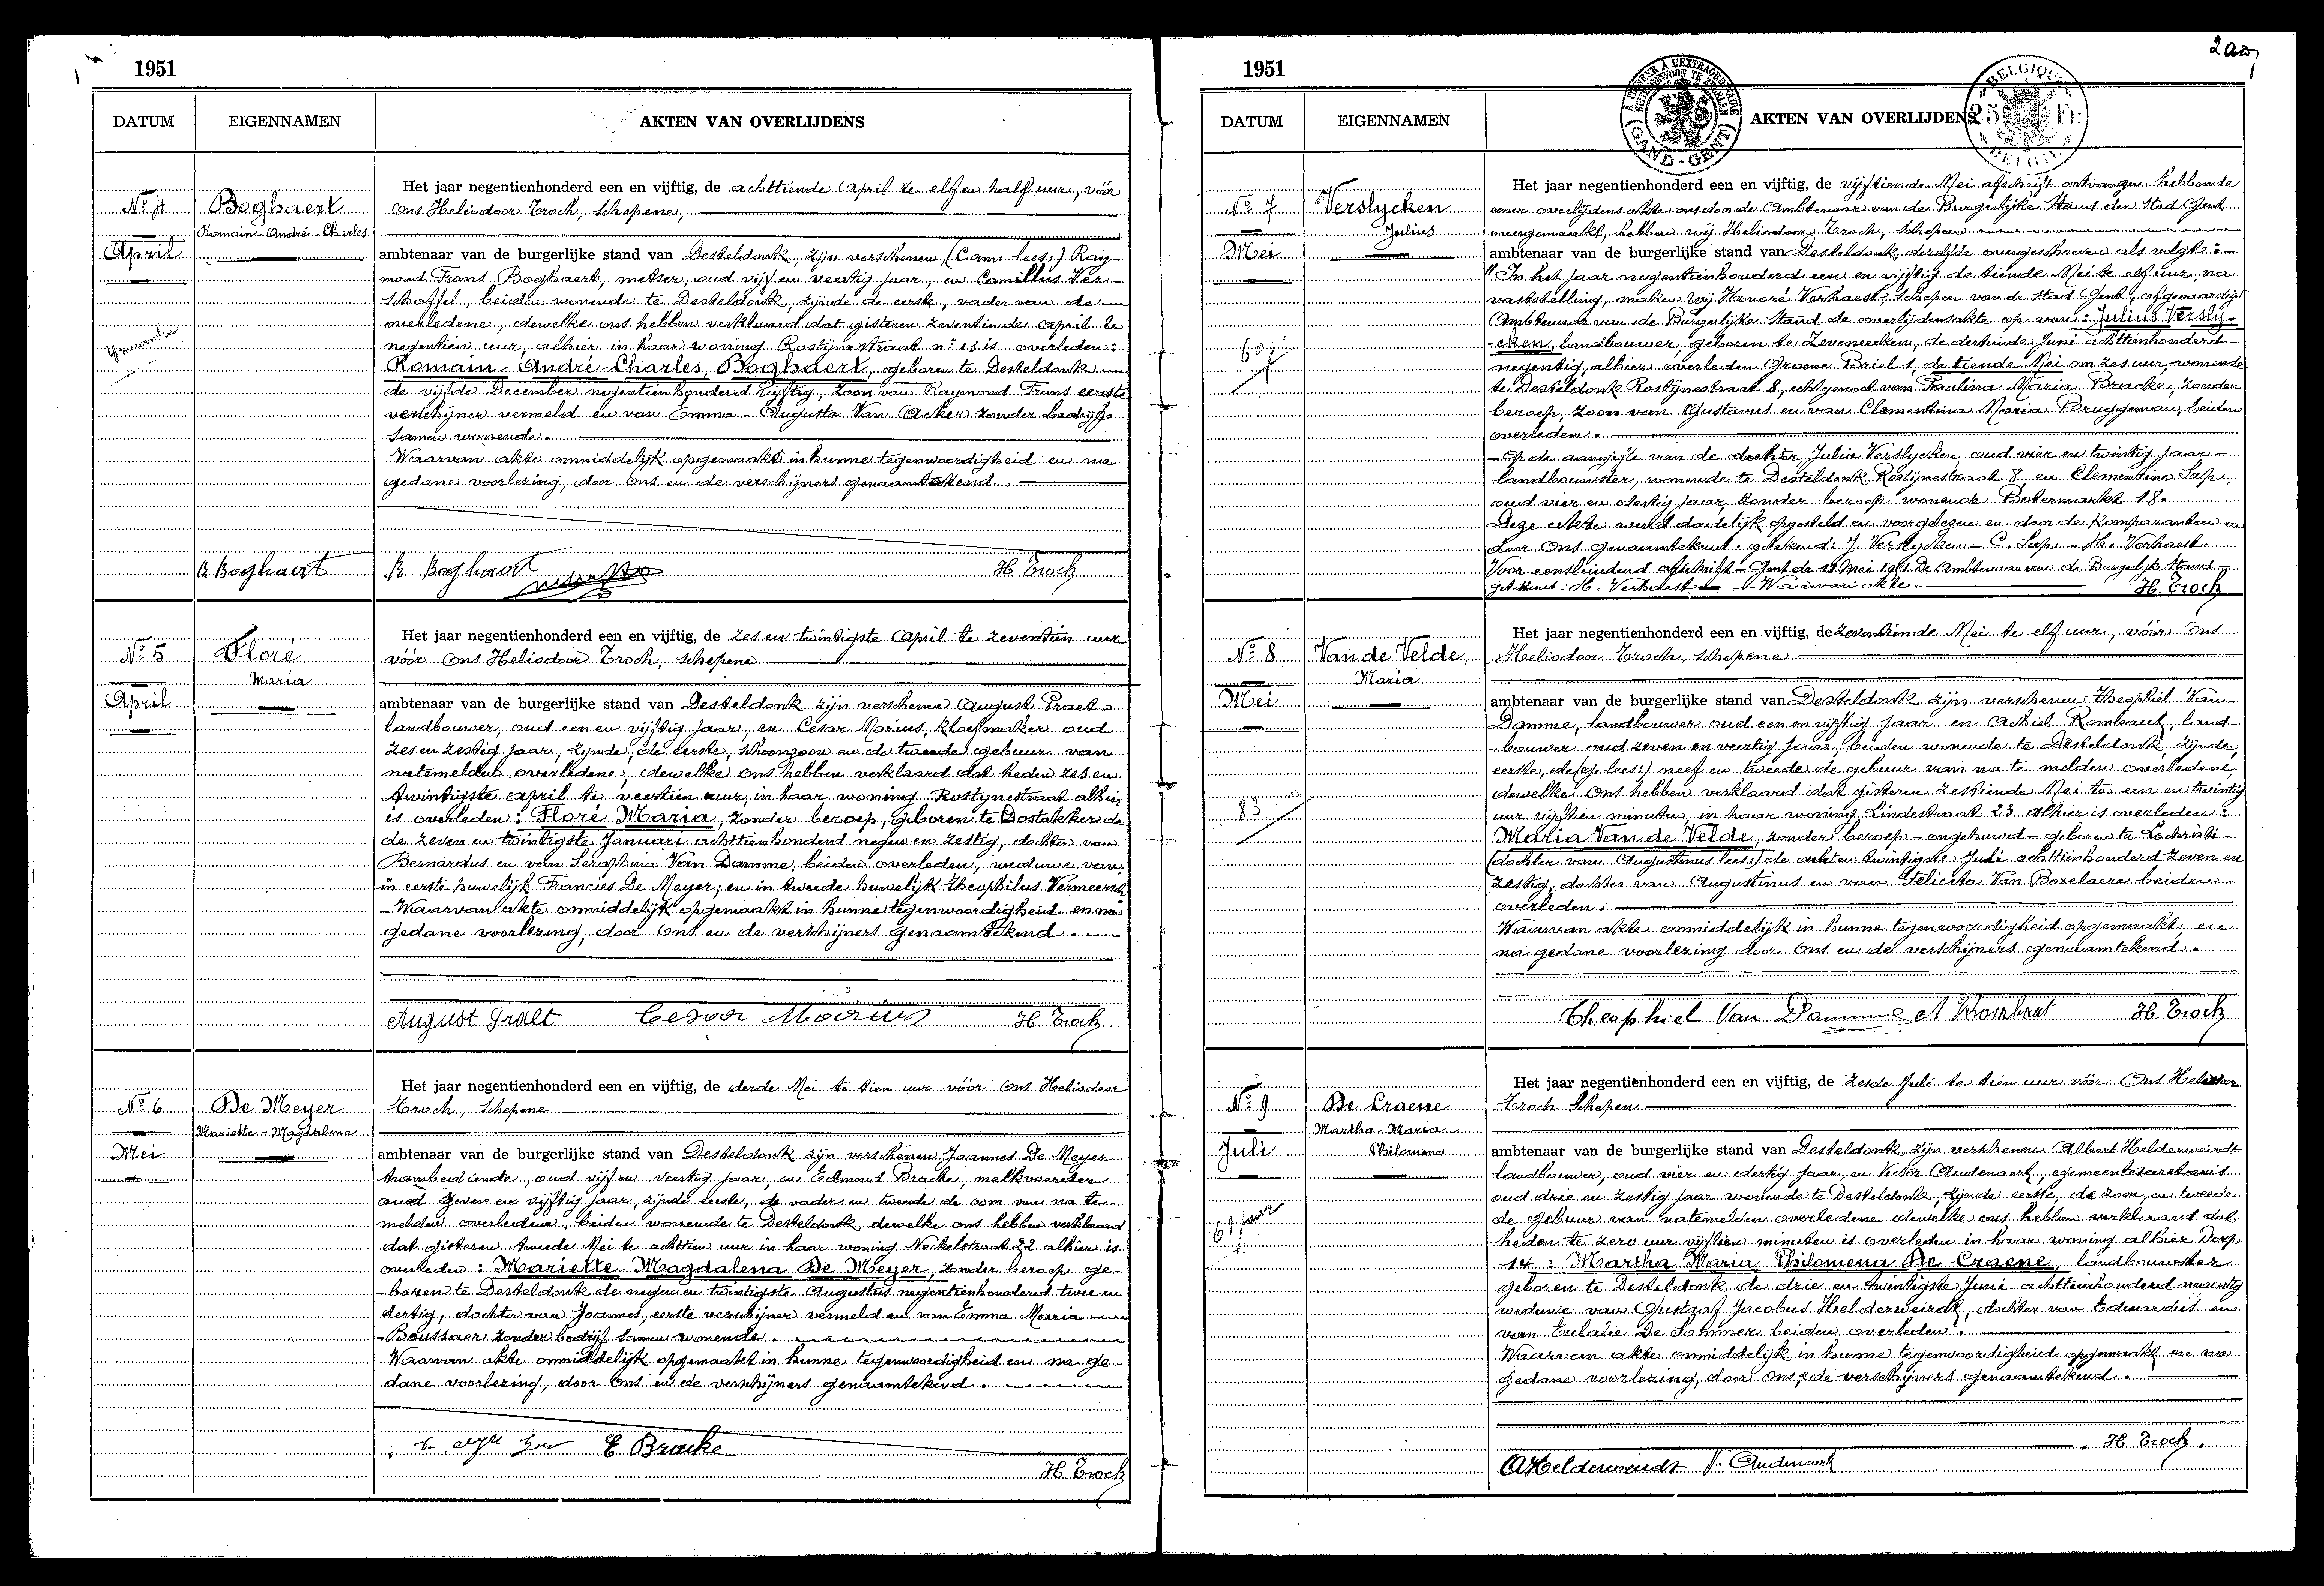 1951
DATUM EIGENNAMEN AKTEN VAN OVERLIJDENS
Het jaar negentienhonderd een en vijftig, de achttiende April te elf en half uur, vóór
No 4 Boghaert Ons Heliodoor Troch, schepene,
Romain-André-Charles
April ambtenaar van de burgerlijke stand van Desteldonk, zijn verschenen, (Cam: lees:) Ray-
mond Frans Boghaert, metser, oud vijf en veertig jaar, en Camillus Ver-
schaffel, beiden wonende te Desteldonk, zijnde de eerste, vader van de
overledene, dewelke ons hebben verklaard dat gisteren zeventiende April te
negentien uur, alhier in haar woning Rostijnestraat n° 13 is overleden:
Romain-André-Charles Boghaert, geboren te Desteldonk
de vijfde December negentienhonderd vijftig, zoon van Raymond Frans eerste
verschijner vermeld en van Emma-Augusta Van Acker zonder bedrijf
samen wonende.
Waarvan akte onmiddelijk opgemaakt in hunne tegenwoordigheid en na
gedane voorlezing, door Ons en de verschijners genaamtekend.
R Boghaert R Boghaert H. Troch
Het jaar negentienhonderd een en vijftig, de zes en twintigste April te zeventien uur
No 5 Floré vóór Ons Heliodoor Troch, schepene
Maria
April ambtenaar van de burgerlijke stand van Desteldonk zijn verschenen August Praet
landbouwer, oud een en vijftig jaar, en Cesar Marius, kloefmaker oud
zes en zestig jaar, zijnde, de eerste, schoonzoon en de tweede gebuur van
natemelden overledene, dewelke ons hebben verklaard dat heden zes en
twintigste april te veertien uur, in haar woning Rostijnestraat alhier
is overleden: Floré Maria, zonder beroep, geboren te Oostakker de
de zeven en twintigste Januari achttienhonderd negen en zestig, dochter van
Bernardus en van Seraphina Van Damme, beiden overleden, weduwe van,
in eerste huwelijk Francies De Meyer, en in tweede huwelijk Theophilus Vermeersch
-Waarvan akte onmiddelijk opgemaakt in hunne tegenwoordigheid en na
gedane voorlezing, door Ons en de verschijners genaamtekend.
August Praet Cesar Marius H. Troch
Het jaar negentienhonderd een en vijftig, de derde Mei te tien uur vóór Ons Heliodoor
No 6 De Meyer Troch, Schepene
Mariette-Magdalena
Mei ambtenaar van de burgerlijke stand van Desteldonk zijn verschenen Joannes De Meyer
trambediende, oud vijf en veertig jaar, en Edmond Bracke, melkvoerder
oud zeven en vijftig jaar, zijnde eerste, de vader en tweede de oom van na te-
melden overledene, beiden wonende te Desteldonk, dewelke ons hebben verklaard
dat gisteren tweede Mei te achttien uur in haar woning Nokelstraat 22 alhier is
overleden: Mariette-Magdalena De Meyer, zonder beroep ge-
-boren te Desteldonk de negen en twintigste Augustus negentienhonderd twee en
dertig, dochter van Joannes, eerste verschijner vermeld en van Emma Maria
-Boussaer zonder bedrijf samen wonende.
Waarvan akte onmiddelijk opgemaakt in hunne tegenwoordigheid en na ge-
dane voorlezing, door Ons en de verschijners genaamtekend.
E Bracke
H. Troch
1951
DATUM EIGENNAMEN AKTEN VAN OVERLIJDENS
GAND-GENT
BELGIQUE 25 FR BELGIE
Het jaar negentienhonderd een en vijftig, de vijftiende Mei afschrift ontvangen hebbende
No 7 Verslycken eener overlijdens akste ons door de Ambtenaar van de Burgerlijke Stand der Stad Gent
Julius overgemaakt, hebben wij Heliodoor Troch, schepen
Mei ambtenaar van de burgerlijke stand van Desteldonk, dezelfde overgeschreven als volgt:
"In het jaar negentienhonderd een en vijftig de tiende Mei te elf uur, na
vaststelling, maken wij Honoré Verhaest, schepen van de stad Gent, afgevaardigd
Ambtenaar van de Burgerlijke Stand de overlijdensakte op van: Julius Versly-
-cken, landbouwer, geboren te Zeveneecken, de dertiende Juni achttienhonderd-
negentig, alhier overleden Groene Briel 1, de tiende Mei om zes uur, wonende
te Desteldonk Rostijnestraat 8, echtgenoot van Paulina Maria Bracke, zonder
beroep, zoon van Gustavus en van Clementina Maria Bruggeman, beiden
overleden.
-Op de aangifte van de dochter Julia Verslycken oud vier en twintig jaar-
landbouwster, wonende te Desteldonk Rostijnestraat 8 en Clementine Sap,
oud vier en dertig jaar, zonder beroep wonende Botermarkt 18.
Deze akte werd dadelijk opgesteld en voorgelezen en door de komparanten en
door Ons genaamtekend. getekend: J. Verslycken - C. Sap - H. Verhaest.
Voor eensluidend afschrift - Gent de 12 Mei 1951 De Ambtenaar van de Burgerlijke Stand
getekend: H. Verhaest - Waarvan akte - H. Troch
Het jaar negentienhonderd een en vijftig, de zeventiende Mei te elf uur, vóór Ons
No 8 Van de Velde Heliodoor Troch, schepene
Maria
Mei ambtenaar van de burgerlijke stand van Desteldonk zijn verschenen Theophiel Van
Damme, landbouwer oud een en vijftig jaar en Achiel Rombaut, land-
-bouwer oud zeven en veertig jaar, beiden wonende te Desteldonk, zijnde,
eerste, de (g lees:) neef en tweede de gebuur van na te melden overledene,
dewelke Ons hebben verklaard dat gisteren zestiende Mei te een en twintig
83 uur vijftien minuten, in haar woning Lindestraat 23 alhier is overleden:
Maria Van de Velde, zonder beroep - ongehuwd - geboren te Lochristi-
(dochter van Augustinus lees:) de acht en twintigste Juli achttienhonderd zeven en
zestig, dochter van Augustinus en van Felicita Van Boxelaere beiden
overleden.
Waarvan akte onmiddelijk in hunne tegenwoordigheid opgemaakt, en
na gedane voorlezing door Ons en de verschijners genaamtekend.
Theophiel Van Damme A Rombaut H. Troch
Het jaar negentienhonderd een en vijftig, de zesde Juli te tien uur vóór Ons Heliodoor
No 9 De Craene Troch Schepen
Martha-Maria-
Juli Philomena ambtenaar van de burgerlijke stand van Desteldonk, zijn verschenen Albert Helderweirdt
landbouwer, oud vier en dertig jaar, en Victor Audenaert, gemeentesecretaris
oud drie en zestig jaar wonende te Desteldonk, zijnde eerste, de zoon, en tweede
61 jaar de gebuur van natemelden overledene dewelke ons hebben verklaard dat
heden te zero uur vijftien minuten is overleden in haar woning alhier Dorp
14: Martha Maria Philomena De Craene, landbouwster
geboren te Desteldonk de drie en twintigste Juni achttienhonderd negentig
weduwe van Gustaaf Jacobus Helderweirdt, dochter van Eduardus en
van Eulalie De Sommer beiden overleden.
Waarvan akte onmiddelijk in hunne tegenwoordigheid opgemaakt en na
gedane voorlezing, door Ons, & de verschijners genaamtekend.
H. Troch.
A Helderweirdt V. Audenaert